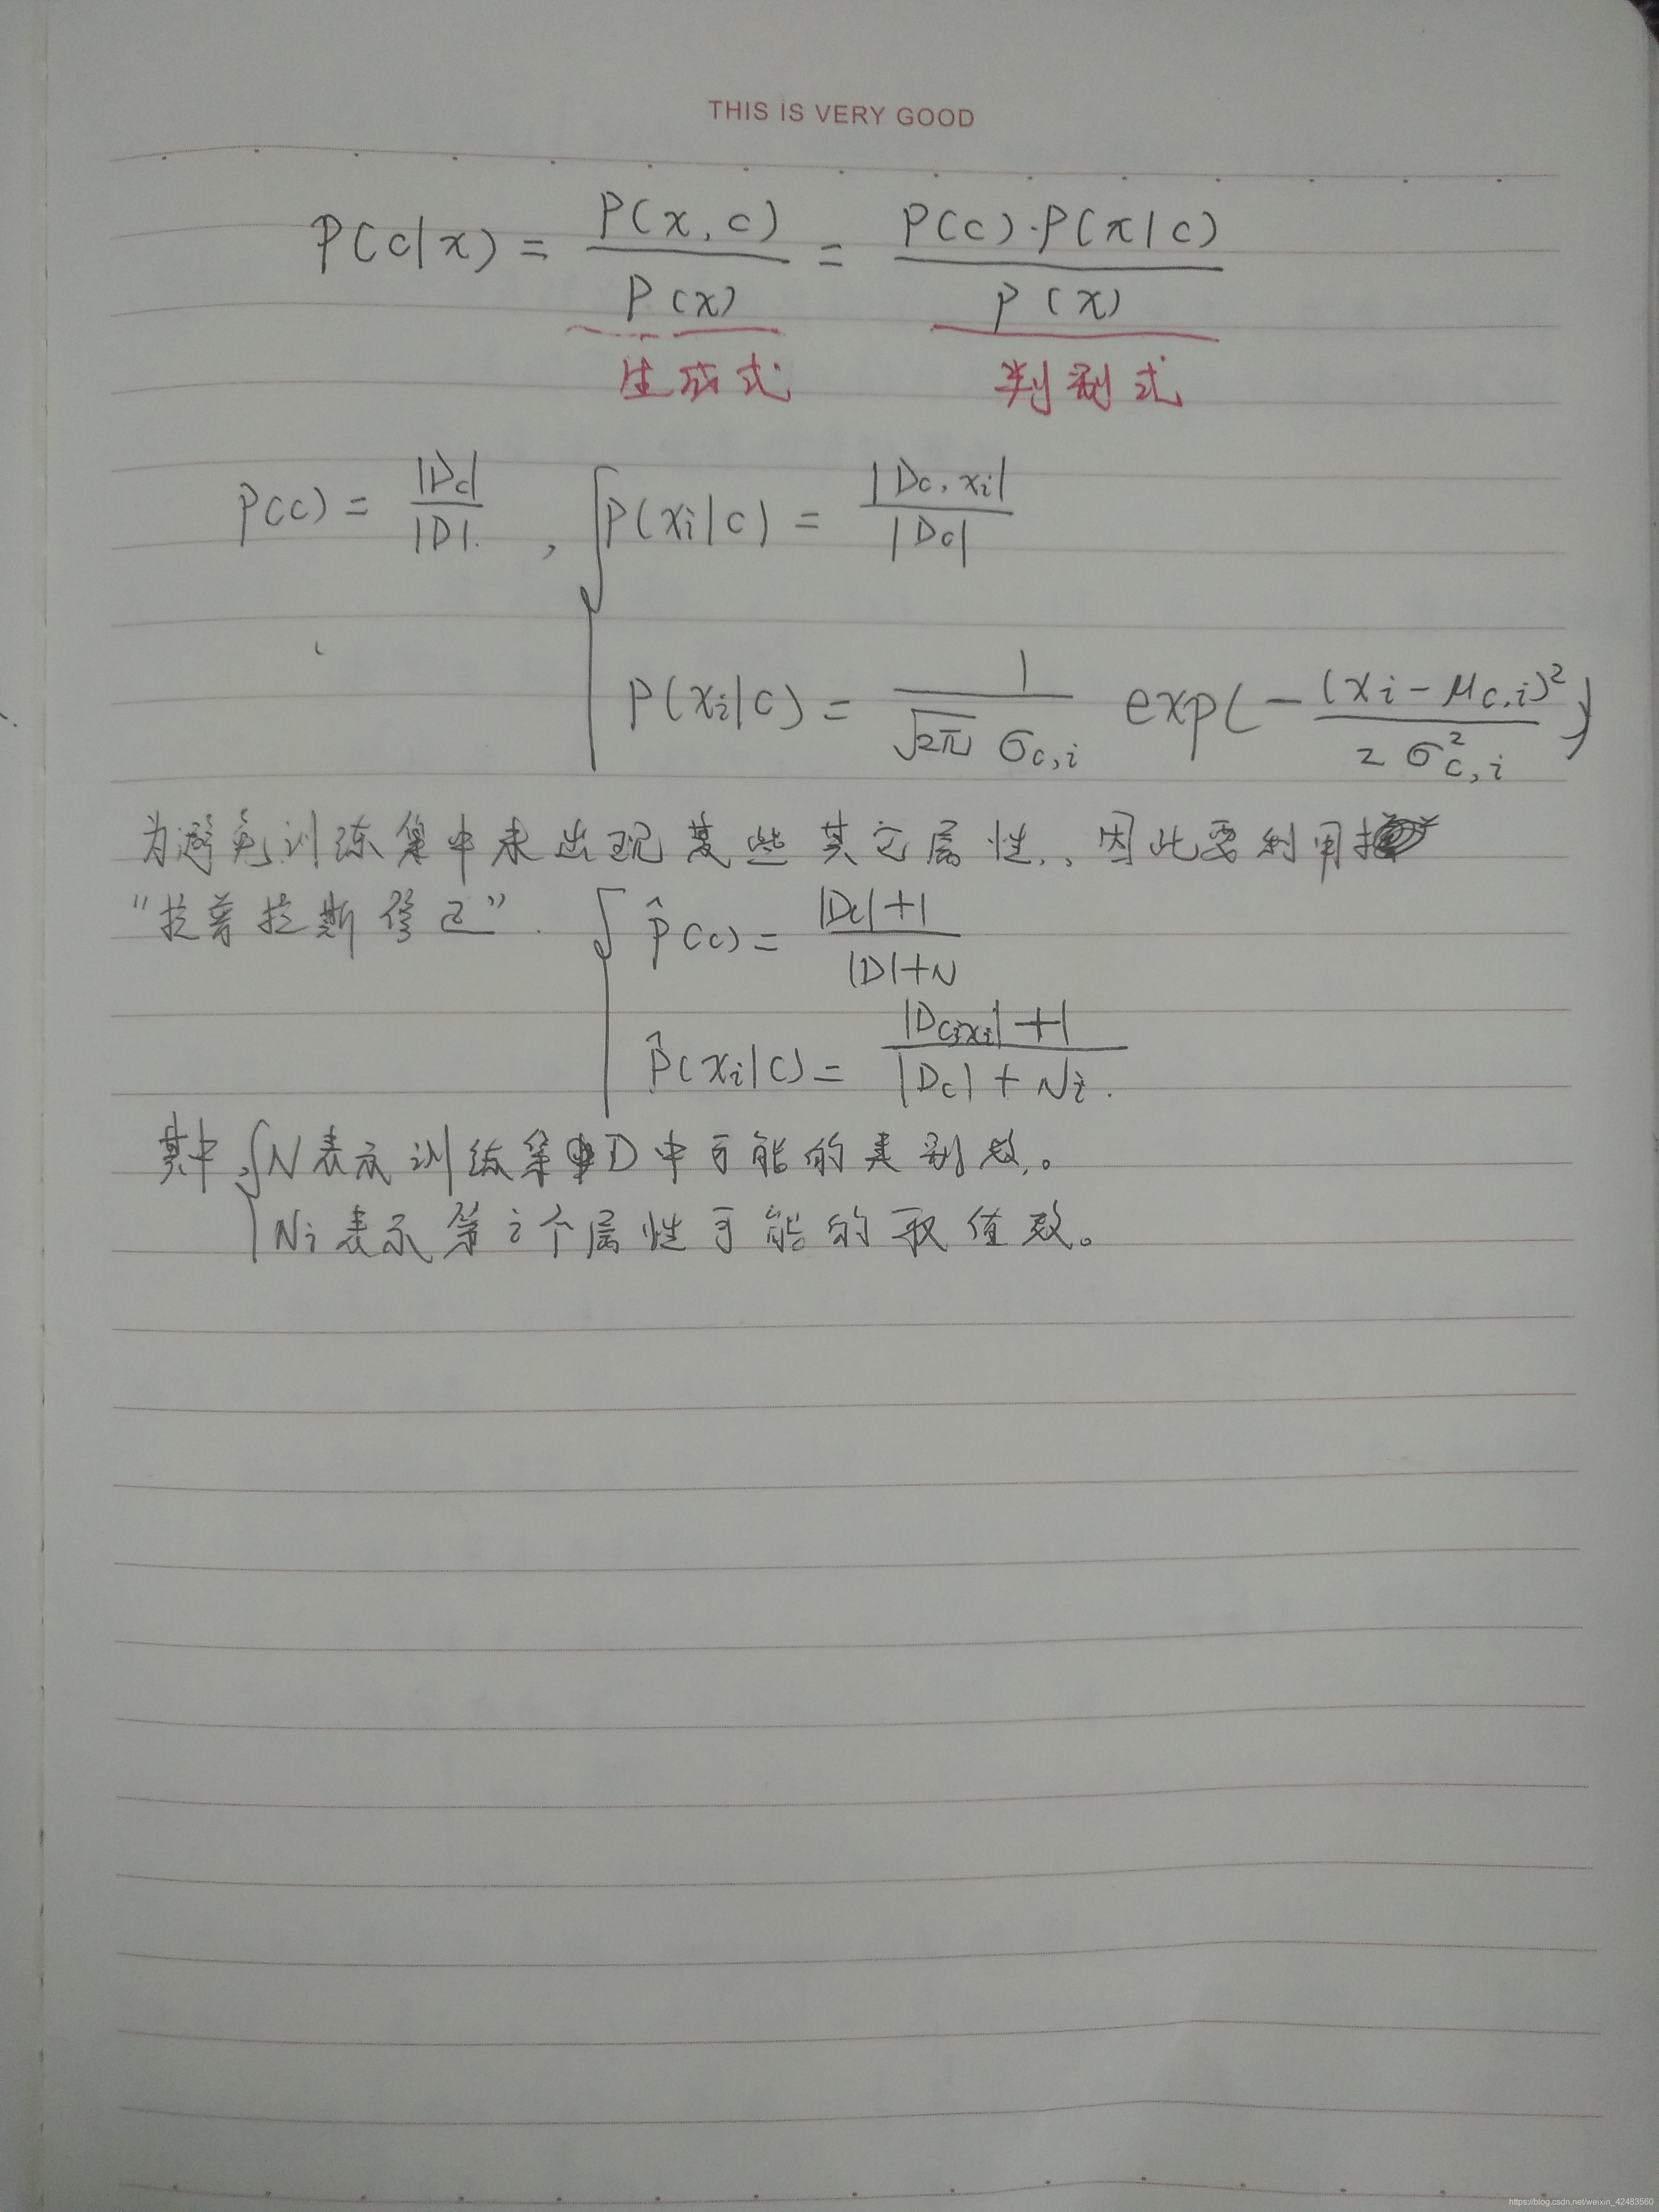 THIS IS VERY GOOD
P(c|x) = P(x,c)/P(x) = P(c)·P(x|c)/P(x)
生成式 判别式
P(c) = |Dc|/|D|. , { P(xi|c) = |Dc,xi|/|Dc|
P(xi|c) = 1/(√2π σc,i) exp(-(xi-μc,i)²/2σ²c,i)
为避免训练集中未出现某些其它属性,,因此要利用
“拉普拉斯修正”. { P̂(c) = |Dc|+1/|D|+N
P̂(xi|c) = |Dc,xi|+1/|Dc|+Ni.
其中,{ N表示训练集D中可能的类别数,。
Ni表示第i个属性可能的取值数。
https://blog.csdn.net/weixin_42483560